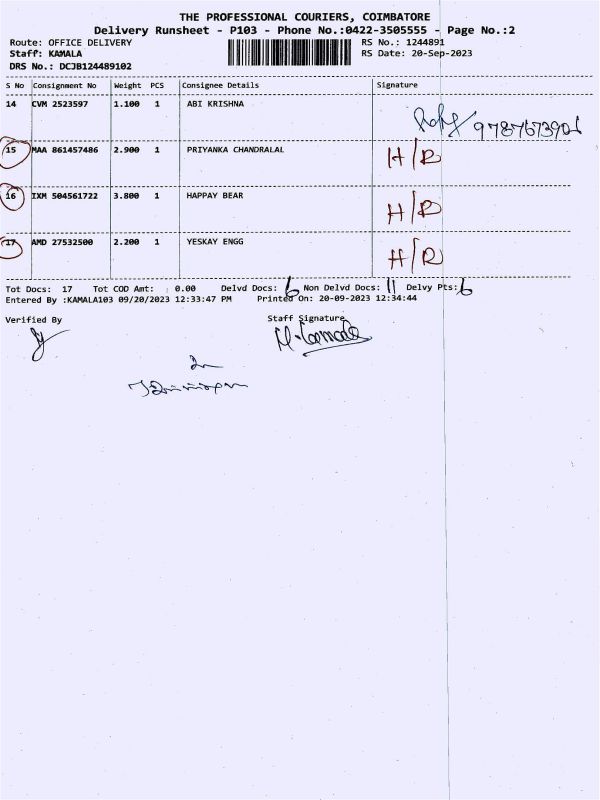 THE PROFESSIONAL COURIERS, COIMBATORE
Delivery Runsheet - P103 - Phone No.:0422-3505555 - Page No.:2
Route: OFFICE DELIVERY RS No.: 1244891
Staff: KAMALA RS Date: 20-Sep-2023
DRS No.: DCJB124489102
S No Consignment No Weight PCS Consignee Details Signature
14 CVM 2523597 1.100 1 ABI KRISHNA
9787673906
15 MAA 861457486 2.900 1 PRIYANKA CHANDRALAL H/R
16 IXM 504561722 3.800 1 HAPPAY BEAR H/R
17 AMD 27532500 2.200 1 YESKAY ENGG H/R
Tot Docs: 17 Tot COD Amt: 0.00 Delvd Docs: 6 Non Delvd Docs: 11 Delvy Pts: 6
Entered By :KAMALA103 09/20/2023 12:33:47 PM Printed On: 20-09-2023 12:34:44
Verified By Staff Signature